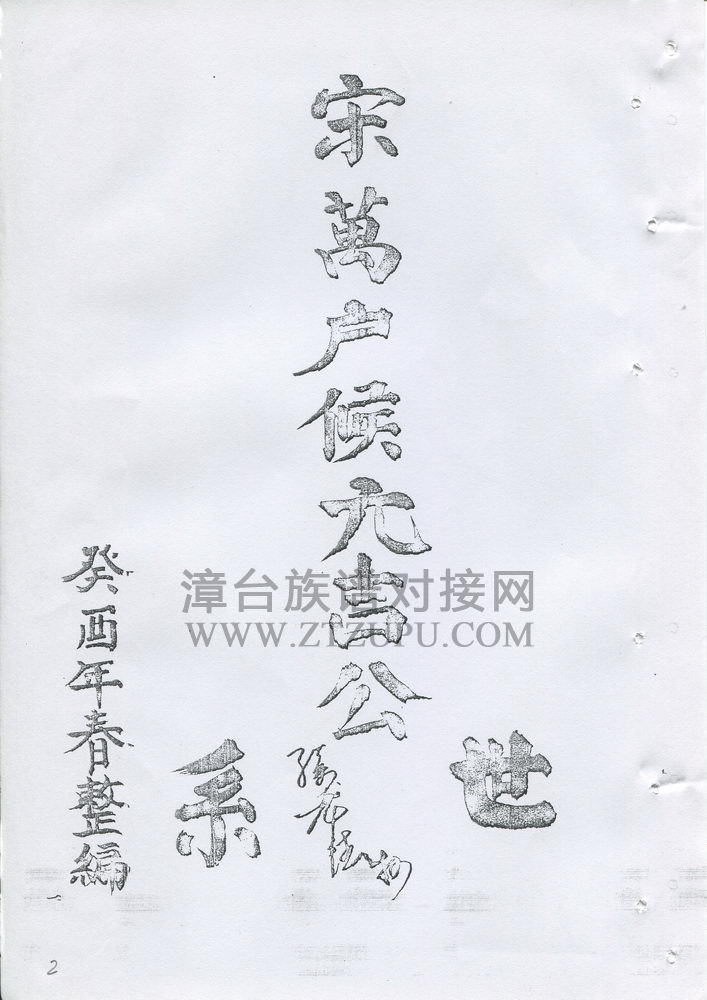 宋萬户候大吉公
世系
癸酉年春整編
漳台族谱对接网
WWW.ZTZUPU.COM
2